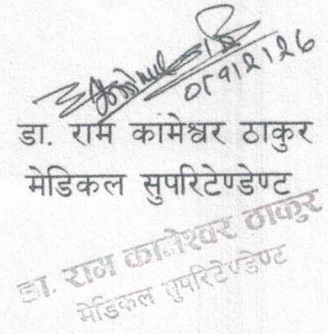 डा. राम कामेश्वर ठाकुर
मेडिकल सुपरिटेण्डेण्ट
डा. राम कामेश्वर ठाकुर
मेडिकल सुपरिटेण्डेण्ट